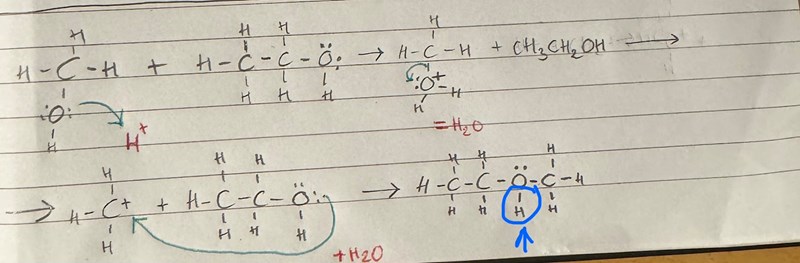 H H H H
H-C-H + H-C-C-Ö: → H-C-H + CH3CH2OH →
:O: H H H :O+-H
H H+ H
= H2O
H H H H H H
→ H-C+ + H-C-C-Ö: → H-C-C-Ö-C-H
H H H H H H H H
+ H2O